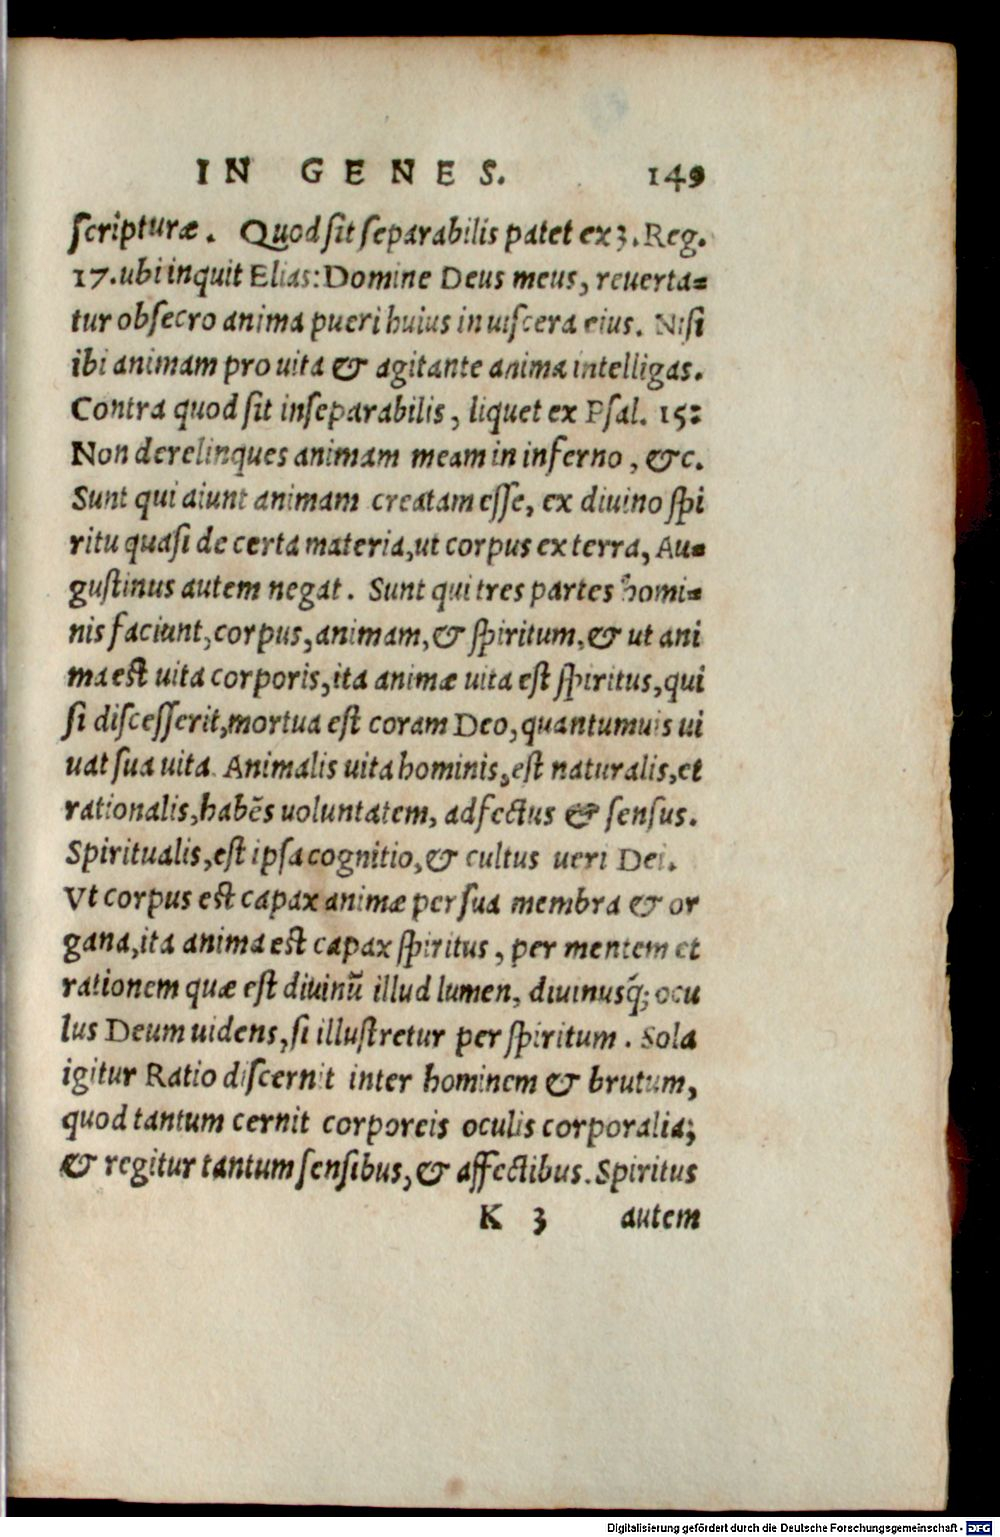 IN GENES. 149
ſcripturæ. Quod ſit ſeparabilis patet ex 3. Reg.
17. ubi inquit Elias: Domine Deus meus, reuerta=
tur obſecro anima pueri huius in uiſcera eius. Niſi
ibi animam pro uita & agitante anima intelligas.
Contra quod ſit inſeparabilis, liquet ex Pſal. 15:
Non derelinques animam meam in inferno, &c.
Sunt qui aiunt animam creatam eſſe, ex diuino ſpi
ritu quaſi de certa materia, ut corpus ex terra, Au=
guſtinus autem negat. Sunt qui tres partes homi=
nis faciunt, corpus, animam, & ſpiritum, & ut ani
ma eſt uita corporis, ita animæ uita eſt ſpiritus, qui
ſi diſceſſerit, mortua est coram Deo, quantumuis ui
uat ſua uita. Animalis uita hominis, eſt naturalis, et
rationalis, habẽs uoluntatem, adfectus & ſenſus.
Spiritualis, eſt ipſa cognitio, & cultus ueri Dei.
Vt corpus eſt capax animæ per ſua membra & or
gana, ita anima eſt capax ſpiritus, per mentem et
rationem quæ eſt diuinũ illud lumen, diuinusq́; ocu
lus Deum uidens, ſi illuſtretur per ſpiritum. Sola
igitur Ratio diſcernit inter hominem & brutum,
quod tantum cernit corporeis oculis corporalia;
& regitur tantum ſenſibus, & affectibus. Spiritus
K 3 autem
Digitalisierung gefördert durch die Deutsche Forschungsgemeinschaft - DFG